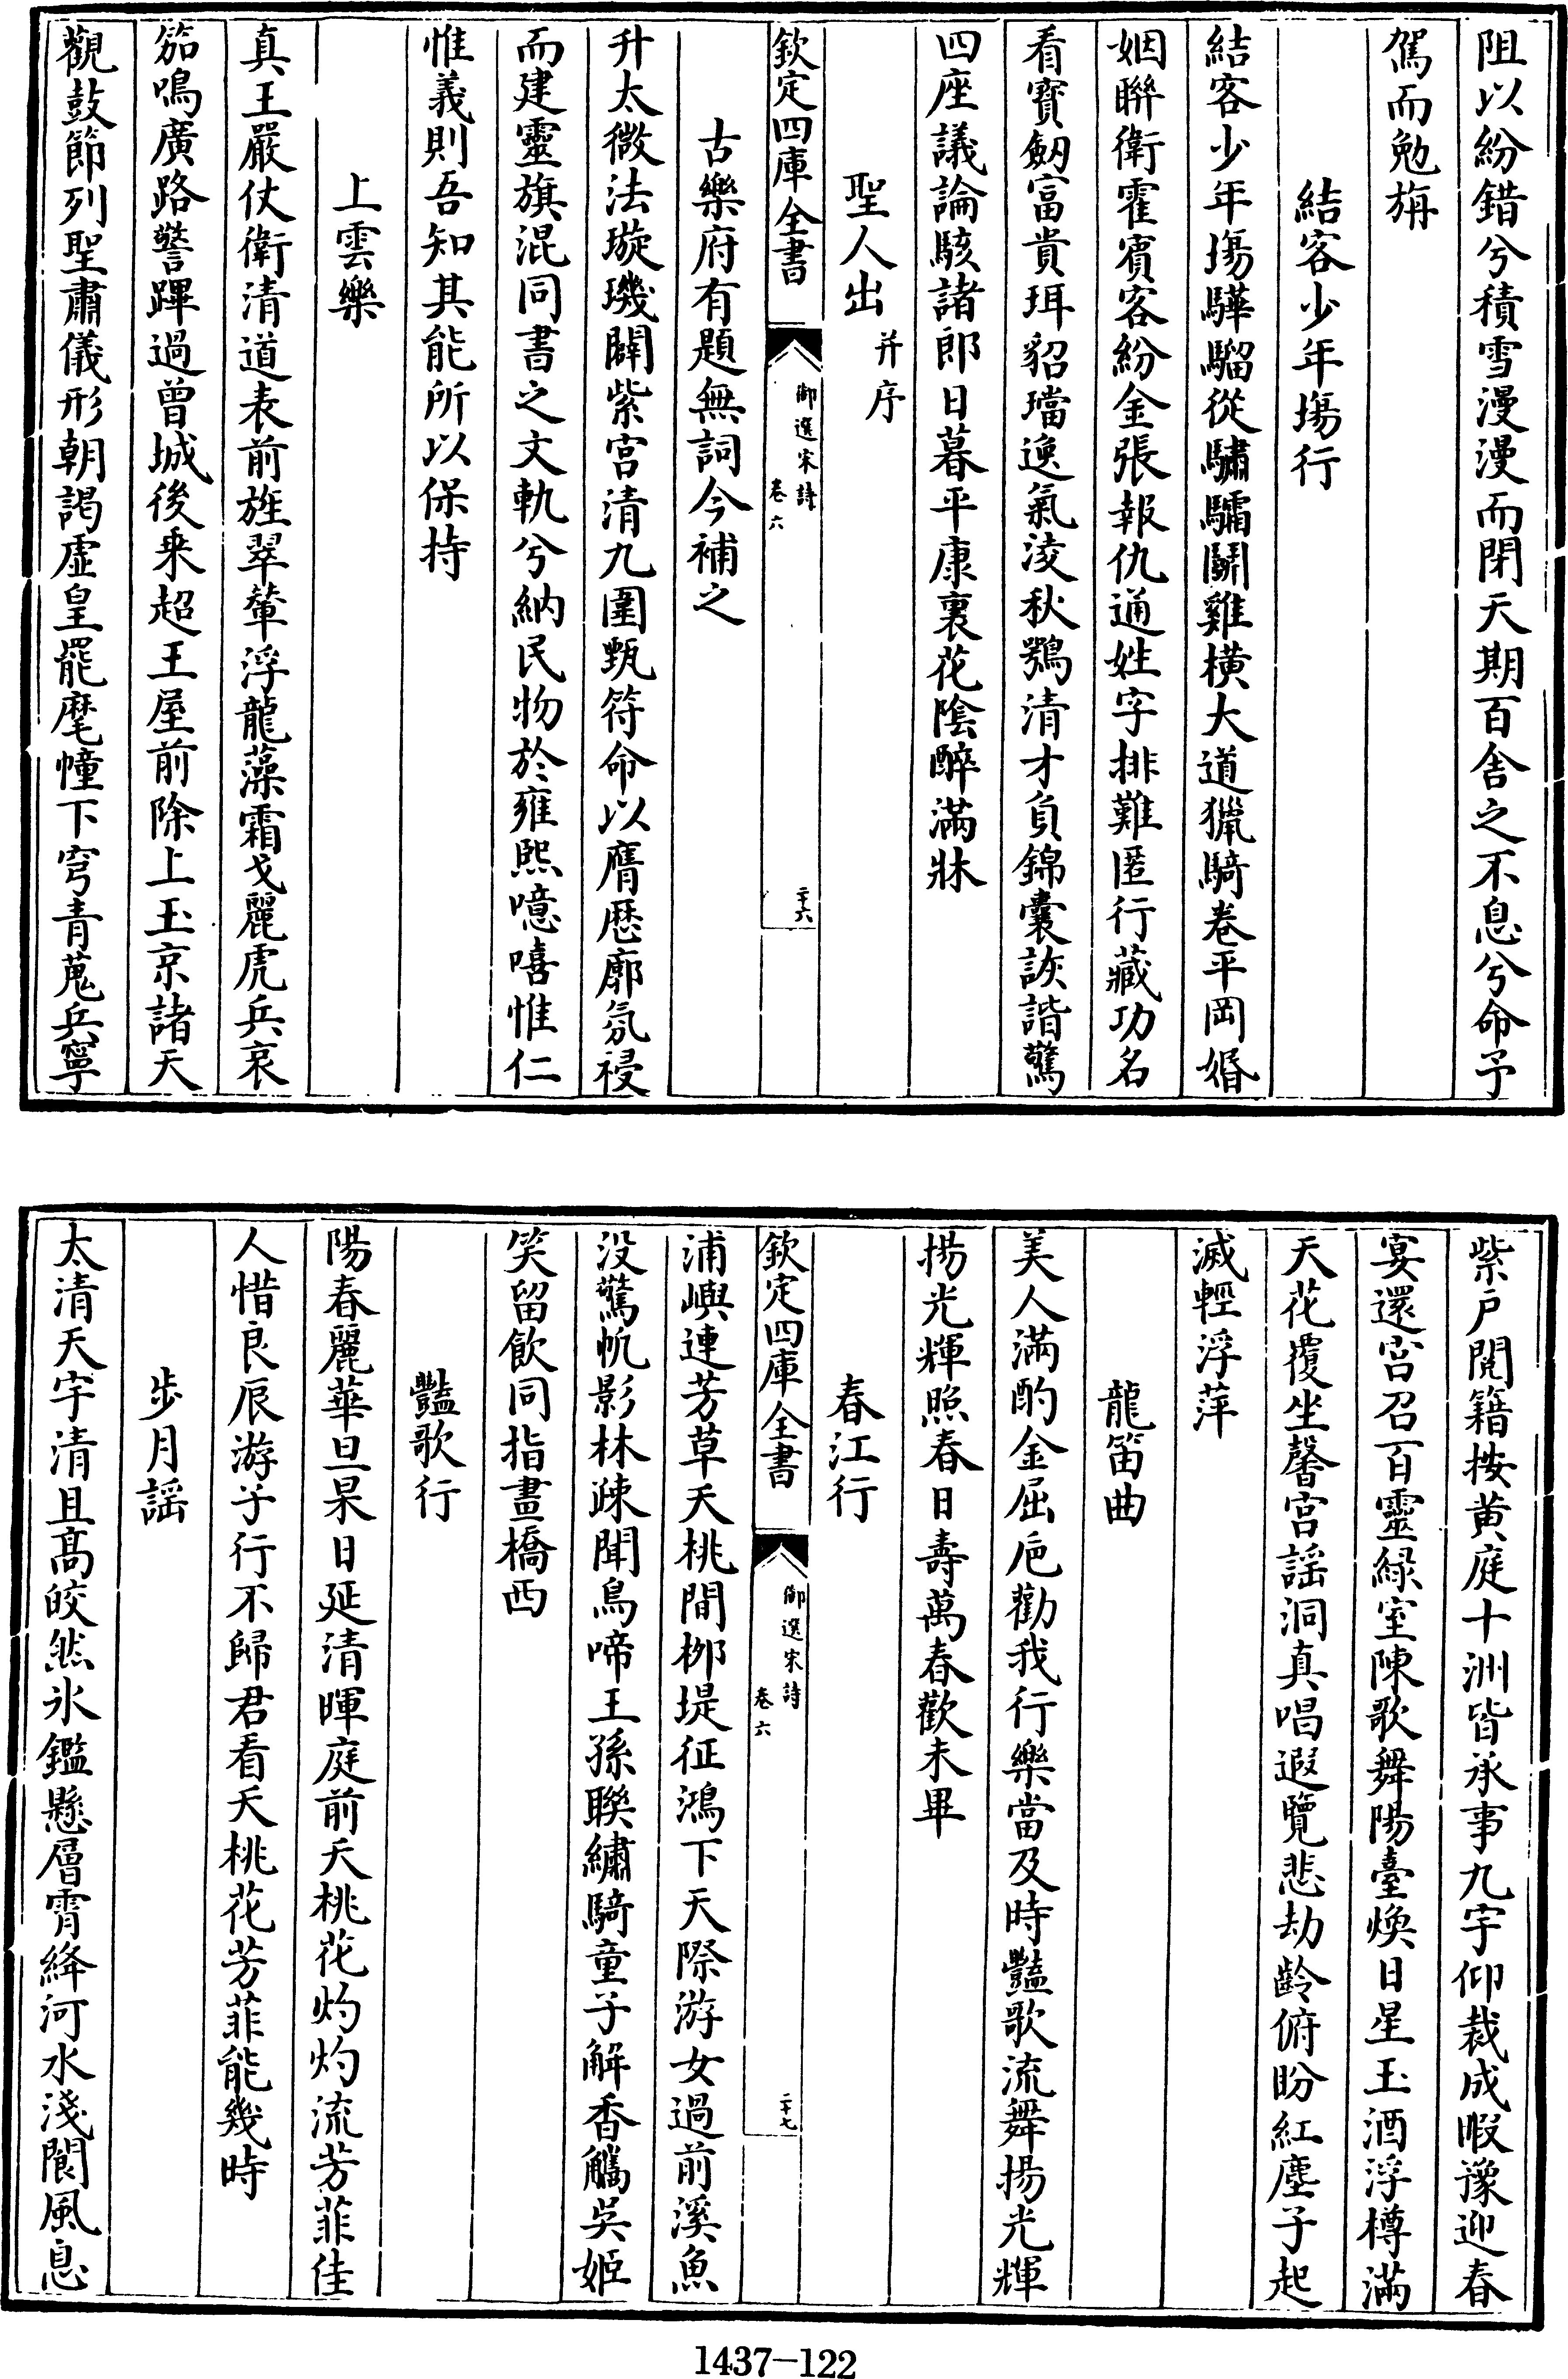 阻以紛錯兮積雪漫漫而閉天期百舍之不息兮命予
駕而勉旃
結客少年塲行
結客少年塲驊騮從驌驦鬭雞橫大道獵騎卷平岡婚
姻聨衛霍賓客紛金張報仇通姓字排難匿行藏功名
看寳劒富貴珥貂璫逸氣淩秋鶚清才負錦囊詼諧驚
四座議論駭諸郎日暮平康裏花陰醉滿牀
聖人出 并序
欽定四庫全書
御選宋詩
卷六
二十六
古樂府有題無詞今補之
升太微法璇璣闢紫宮清九圍甄符命以膺厯廓氛祲
而建靈旗混同書之文軌兮納民物於雍熙噫嘻惟仁
惟義則吾知其能所以保持
上雲樂
真王嚴仗衛清道表前旌翠輦浮龍藻霜戈麗虎兵哀
笳鳴廣路警蹕過曾城後乘超王屋前除上玉京諸天
觀鼓節列聖肅儀形朝謁虛皇罷麾幢下穹青蒐兵寧
紫戸閱籍按黄庭十洲皆承事九宇仰裁成暇豫迎春
宴還宫召百靈緑室陳歌舞陽臺煥日星玉酒浮樽滿
天花覆坐馨宫謡洞真唱遐覽悲劫齡俯盼紅塵子起
滅輕浮萍
龍笛曲
美人滿酌金屈巵勸我行樂當及時豔歌流舞揚光輝
揚光輝照春日壽萬春歡未畢
春江行
欽定四庫全書
御選宋詩
卷六
二十七
浦嶼連芳草夭桃間栁堤征鴻下天際游女過前溪魚
没驚帆影林疎聞鳥啼王孫聮繡騎童子解香觿吳姬
笑留飲同指畫橋西
豔歌行
陽春麗華旦杲日延清暉庭前夭桃花灼灼流芳菲佳
人惜良辰游子行不歸君看夭桃花芳菲能幾時
步月謡
太清天宇清且髙皎然氷鑑懸層霄絳河水淺閬風息
1437—122